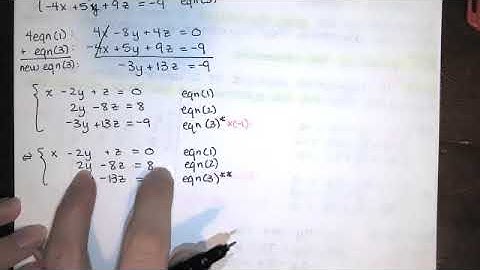 -4x + 5y + 9z = -9 eqn(3)
4eqn(1): 4x - 8y + 4z = 0
+ eqn(3): -4x + 5y + 9z = -9
new eqn(3): -3y + 13z = -9
x - 2y + z = 0 eqn(1)
2y - 8z = 8 eqn(2)
-3y + 13z = -9 eqn(3)* ×(-1)
⇔ x - 2y + z = 0 eqn(1)
2y - 8z = 8 eqn(2)
- 13z = eqn(3)**